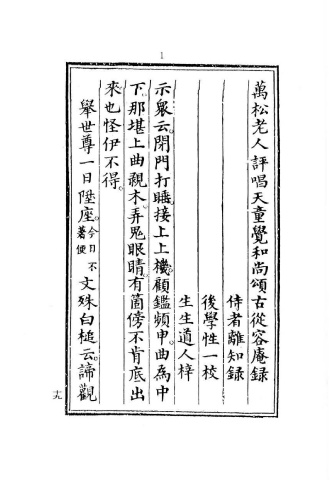 1
萬松老人評唱天童覺和尚頌古從容庵録
侍者離知録
後學性一校
生生道人梓
示衆云。閉門打睡。接上上機。顧鑑頻申。曲為中
下。那堪上曲親木。弄鬼眼睛。有箇傍不肯底出
來也怪伊不得。
舉世尊一日陞座。今日不著便文殊白槌云。諦觀